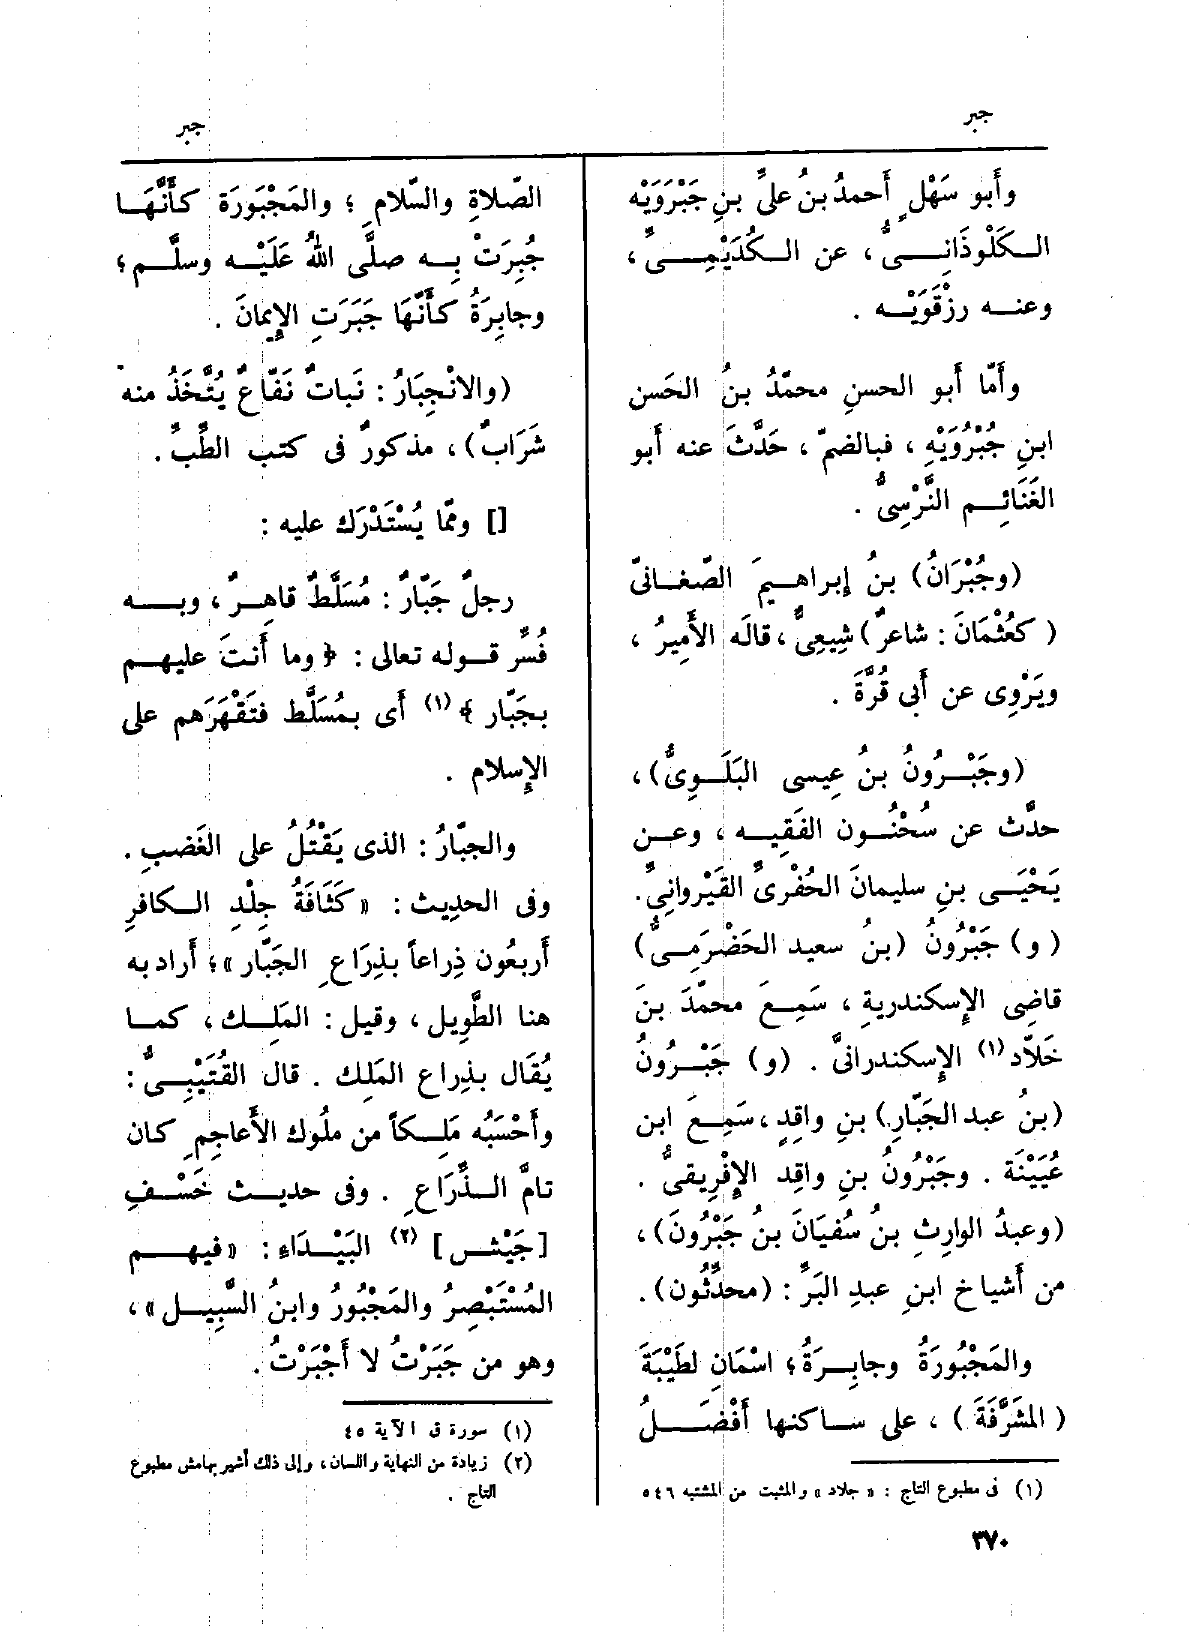 جبر
وأَبو سَهْلٍ أَحمدُ بنُ علىِّ بنِ جَبْرَوَيْه
الكَلْوذَانِىُّ ، عن الكُدَيْمِىِّ ،
وعنه رزْقَوَيْه .
وأَمّا أَبو الحسنِ محمّدُ بنُ الحَسن
ابنِ جُبْرُويَهِ ، فبالضمّ ، حَدَّثَ عنه أَبو
الغَنَائِم النَّرْسِىُّ .
(وجُبْرَانُ) بنُ إبراهيمَ الصّغانىّ
( كعُثْمَانَ : شاعرٌ) شِيعِىٌّ ، قالَه الأَمِيرُ ،
ويَرْوِى عن أَبى قُرَّةَ .
(وجَبْرُونُ بنُ عِيسى البَلَوِىُّ) ،
حدَّث عن سُحْنُون الفَقِيه ، وعن
يَحْيَى بنِ سليمانَ الحُفْرىِّ القَيْروانِىِّ.
( و) جَبْرُونُ (بنُ سعيد الحَضْرَمِىُّ)
قاضِى الإِسكندريةِ ، سَمِعَ محمّدَ بنَ
خَلاّد (١) الإِسكندرانىَّ . (و) جَبْرُونُ
(بنُ عبد الجَبّارِ) بنِ واقِدٍ ، سَمِعَ ابن
عُيَيْنَة . وجَبْرُونُ بنِ واقِد الإِفْرِيقىُّ .
(وعبدُ الوارِثِ بنُ سُفْيَانَ بنُ جَبْرُونَ) ،
من أَشياخ ابنِ عبدِ البَرِّ : (محدِّثُون) .
والمَجْبُورَةُ وجابِرَةُ ؛ اسْمَانِ لطَيْبَةَ
( المشَرَّفَةَ ) ، على ساكنها أَفْضَلُ
(١) فى مطبوع التاج : « جلاد » والمثبت من المشتبه ٥٤٦
جبر
الصّلاةِ والسّلامِ ؛ والمَجْبُورَة كأَنَّهَا
جُبِرَتْ بِه صلَّى اللهُ عَلَيْه وسلَّم ؛
وجابِرَةُ كأَنَّهَا جَبَرَتِ الإِيمَانَ .
(والانْجِبَارُ : نَباتٌ نَفّاعٌ يُتَّخَذُ منه
شَرَابٌ) ، مذكورٌ فى كتب الطِّبِّ .
[] وممّا يُسْتَدْرَك عليه :
رجلٌ جَبّارٌ : مُسَلَّطٌ قاهِرٌ ، وبه
فُسِّرَ قوله تعالى : ﴿ وما أَنتَ عليهم
بجَبّار ﴾ (١) أَى بمُسَلَّط فتَقْهَرَهم على
الإِسلام .
والجبّارُ : الذى يَقْتُلُ على الغَضبِ .
وفى الحدِيث : « كَثَافَةُ جِلْدِ الكافرِ
أَربعُون ذِراعاً بذِرَاعِ الجَبّار » ؛ أَراد به
هنا الطَّوِيل ، وقيل : المَلِك ، كما
يُقَال بذِراع المَلِك . قال القُتَيْبِىُّ :
وأَحْسَبُه مَلِكاً من ملُوك الأَعاجِمِ كان
تامَّ الذِّرَاعِ . وفى حديث خَسْفِ
[جَيْشِ] (٢) البَيْدَاءِ : « فيهم
المُسْتَبْصِرُ والمَجْبُورُ وابنُ السَّبِيل » ،
وهو من جَبَرْتُ لا أَجْبَرْتُ .
(١) سورة ق الآية ٤٥
(٢) زيادة من النهاية واللسان ، وإلى ذلك أشير بهامش مطبوع
التاج .
٣٧٠